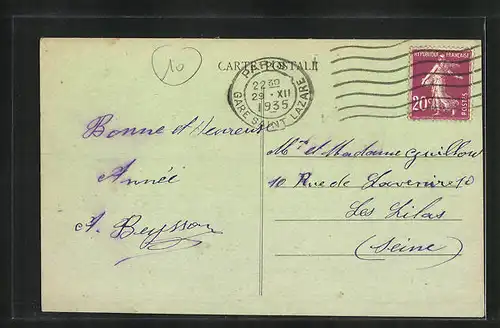 10
CARTE POSTALE
PARIS
22 30
29 · XII
1935
GARE SAINT LAZARE
REPUBLIQUE FRANÇAISE
20c
POSTES
Bonne et Heureuse
Année
A. Beysson
Mr et Madame Guillou
10 Rue de l'avenir 10
Les Lilas
(Seine)